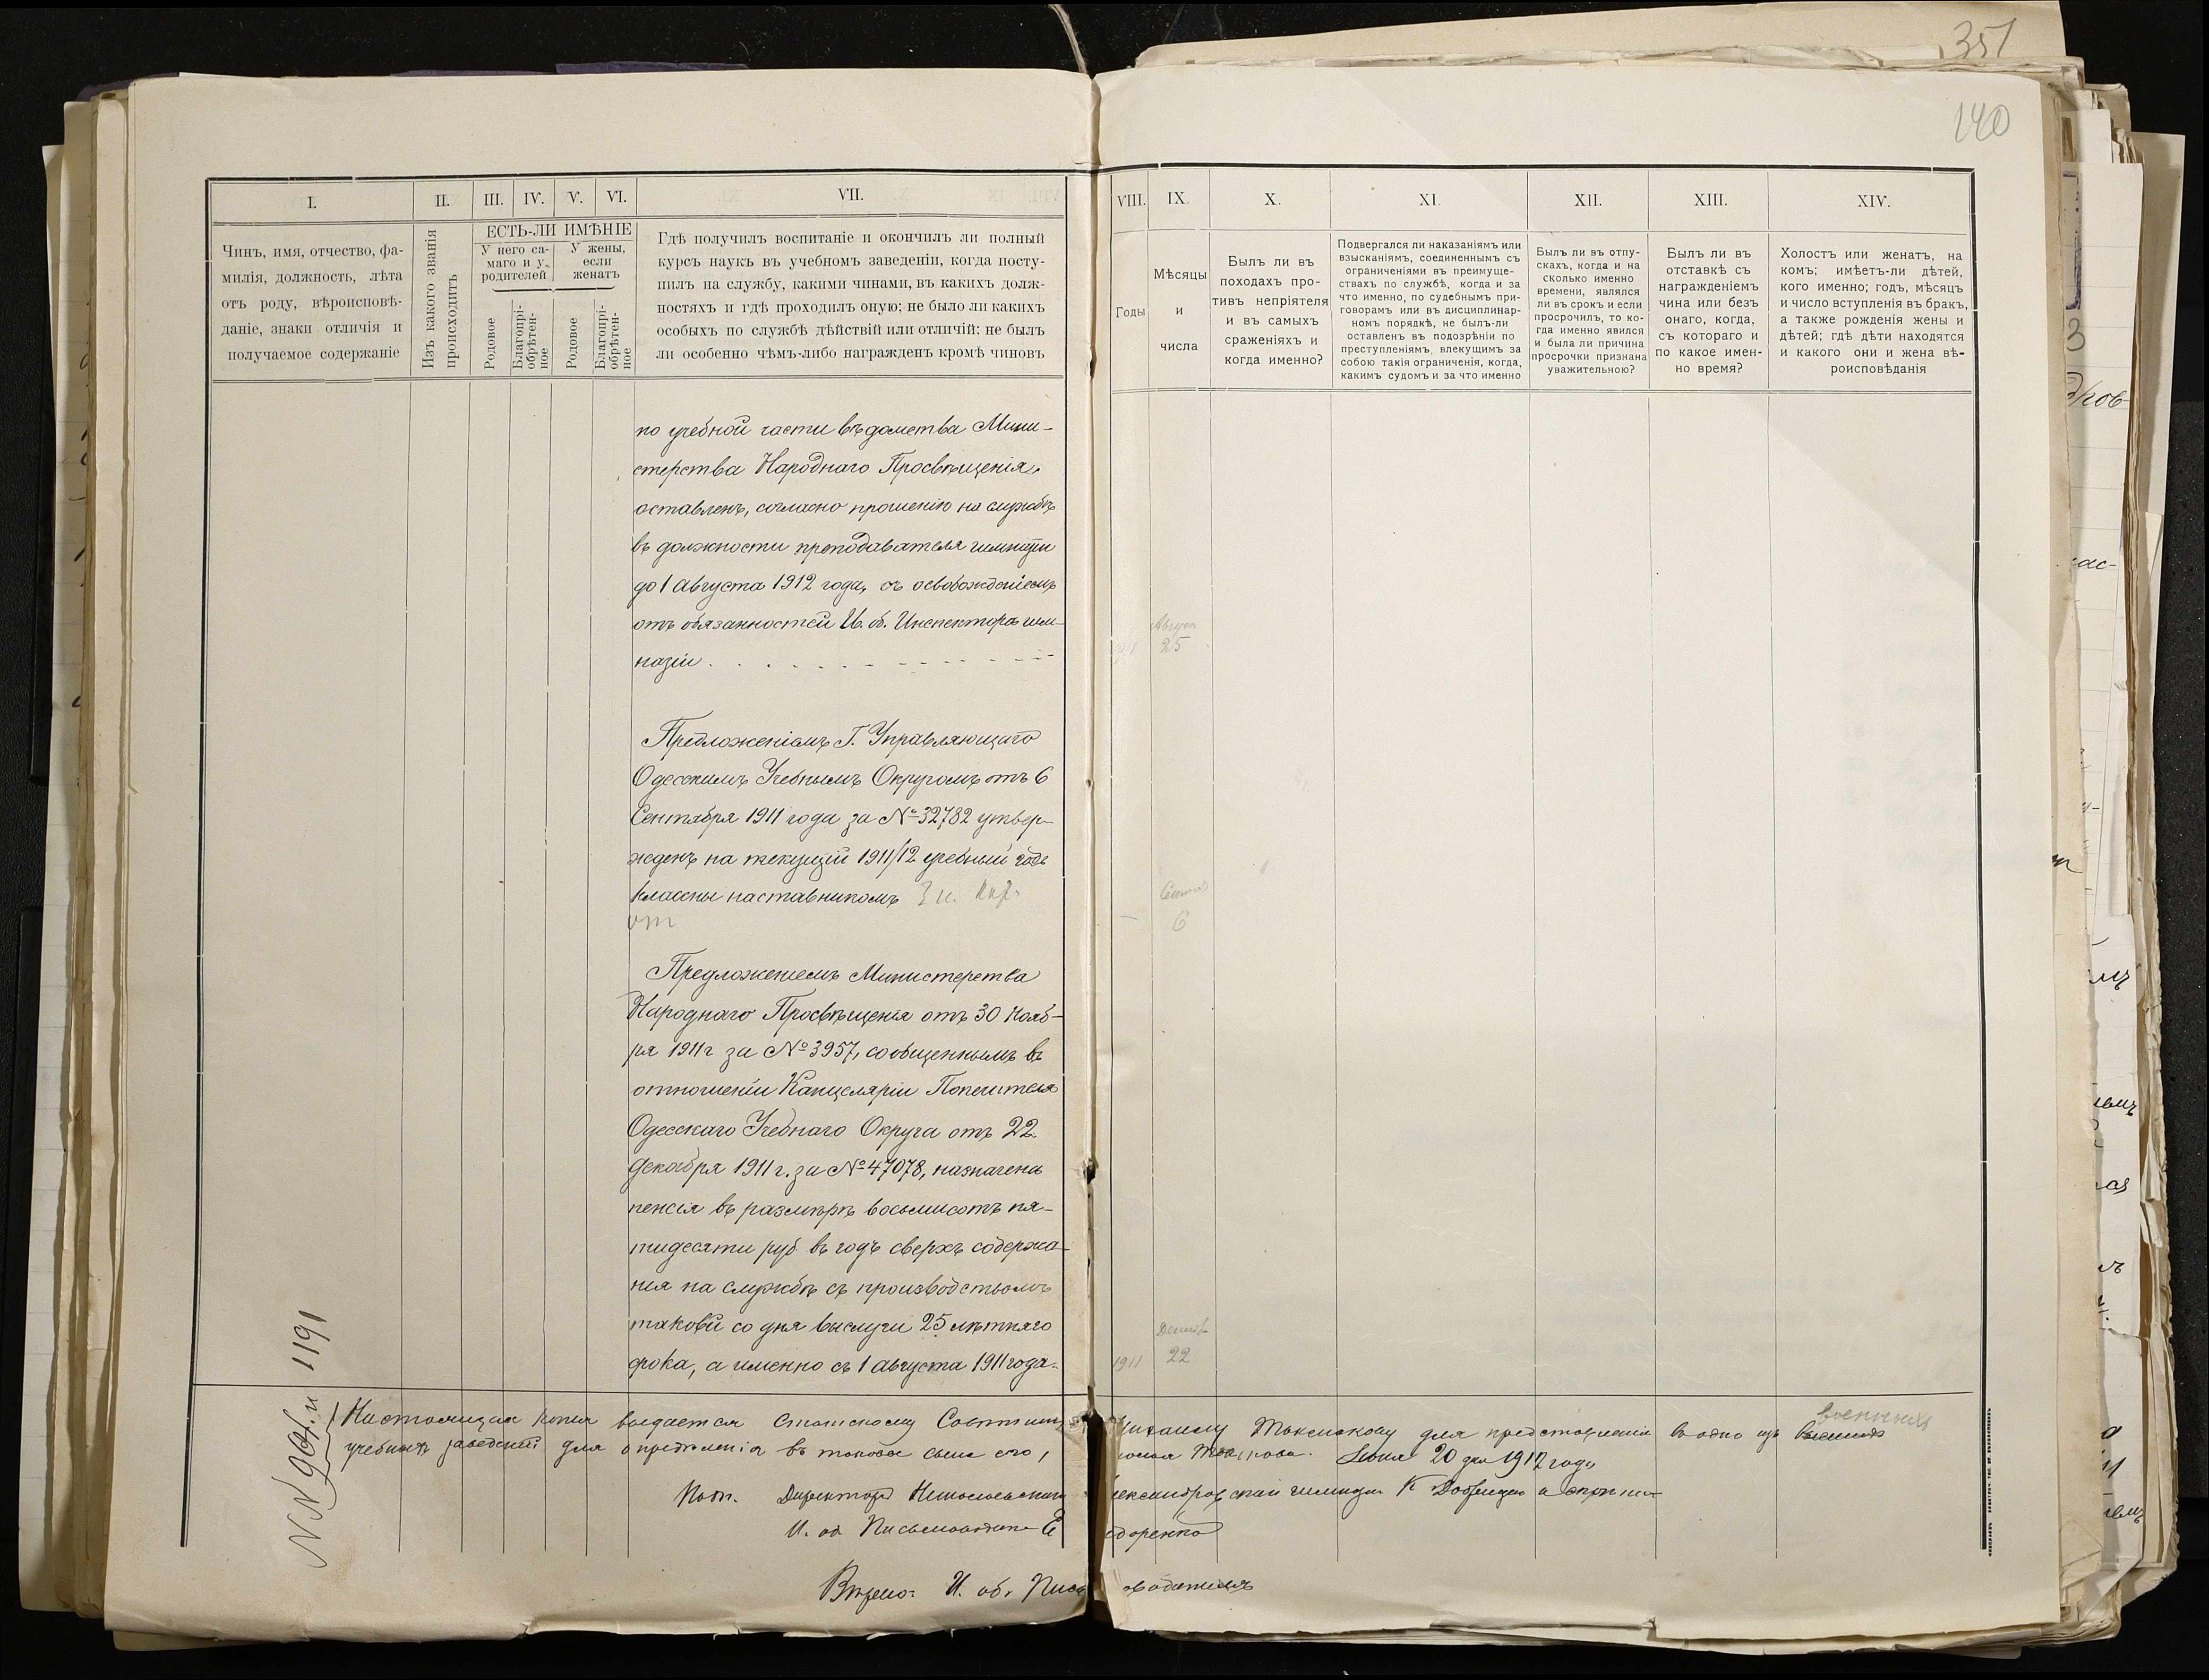 351
140
I.
II.
III.
IV.
V.
VI.
VII.
VIII.
IX.
X.
XI.
XII.
XIII.
XIV.
Чинъ, имя, отчество, фа-
милія, должность, лѣта
отъ роду, вѣроисповѣ-
даніе, знаки отличія и
получаемое содержаніе
Изъ какого званія
происходитъ
ЕСТЬ-ЛИ ИМѢНІЕ
У него са-
маго и у
родителей
У жены,
если
женатъ
Родовое
Благопрі-
обрѣтен-
ное
Родовое
Благопрі-
обрѣтен-
ное
Гдѣ получилъ воспитаніе и окончилъ ли полный
курсъ наукъ въ учебномъ заведеніи, когда посту-
пилъ на службу, какими чинами, въ какихъ долж-
ностяхъ и гдѣ проходилъ оную; не было ли какихъ
особыхъ по службѣ дѣйствій или отличій: не былъ
ли особенно чѣмъ-либо награжденъ кромѣ чиновъ
Годы
Мѣсяцы
и
числа
Былъ ли въ
походахъ про-
тивъ непріятеля
и въ самыхъ
сраженіяхъ и
когда именно?
Подвергался ли наказаніямъ или
взысканіямъ, соединеннымъ съ
ограниченіями въ преимуще-
ствахъ по службѣ, когда и за
что именно, по судебнымъ при-
говорамъ или въ дисциплинар-
номъ порядкѣ, не былъ-ли
оставленъ въ подозрѣніи по
преступленіямъ, влекущимъ за
собою такія ограниченія, когда,
какимъ судомъ и за что именно
Былъ ли въ отпу-
скахъ, когда и на
сколько именно
времени, являлся
ли въ срокъ и если
просрочилъ, то ко-
гда именно явился
и была ли причина
просрочки признана
уважительною?
Былъ ли въ
отставкѣ съ
награжденіемъ
чина или безъ
онаго, когда,
съ котораго и
по какое имен-
но время?
Холостъ или женатъ, на
комъ; имѣетъ-ли дѣтей,
кого именно; годъ, мѣсяцъ
и число вступленія въ бракъ,
а также рожденія жены и
дѣтей; гдѣ дѣти находятся
и какого они и жена вѣ-
роисповѣданія
по учебной части вѣдомства Мини-
стерства Народнаго Просвѣщенія,
оставленъ, согласно прошенію на службѣ
въ должности преподавателя гимназіи
до 1 августа 1912 года, съ освобожденіемъ
отъ обязанностей И. об. Инспектора гим-
назіи
Август
25
Предложеніемъ Г. Управляющаго
Одесскимъ Учебнымъ Округомъ отъ 6
Сентября 1911 года за № 32782 утвер-
жденъ на текущій 1911/12 учебный годъ
классны наставникомъ
от
6
Предложеніемъ Министерства
Народнаго Просвѣщенія отъ 30 Нояб-
ря 1911 г за № 3957, сообщеннымъ въ
отношеніи Канцеляріи Попечителя
Одесскаго Учебнаго Округа отъ 22
Декабря 1911 г. за № 47078, назначена
пенсія въ размѣрѣ восьмисотъ пя-
тидесяти руб въ годъ сверхъ содержа-
нія на службѣ съ производствомъ
таковй со дня выслуги 25 лѣтняго
срока, а именно съ 1 августа 1911 года.
1911
22
1191
Настоящая копія выдается Статскому Совѣтнику Михаилу для представленія въ одно изъ военныхъ
учебныхъ заведеній для опредѣленія въ таковое сына его, 20 дня 1912 года
Подп. Директоръ Николаевской Александровской гимназіи К.
И. об. Письмоводителя
Вѣрно: И. об. Письмоводителя